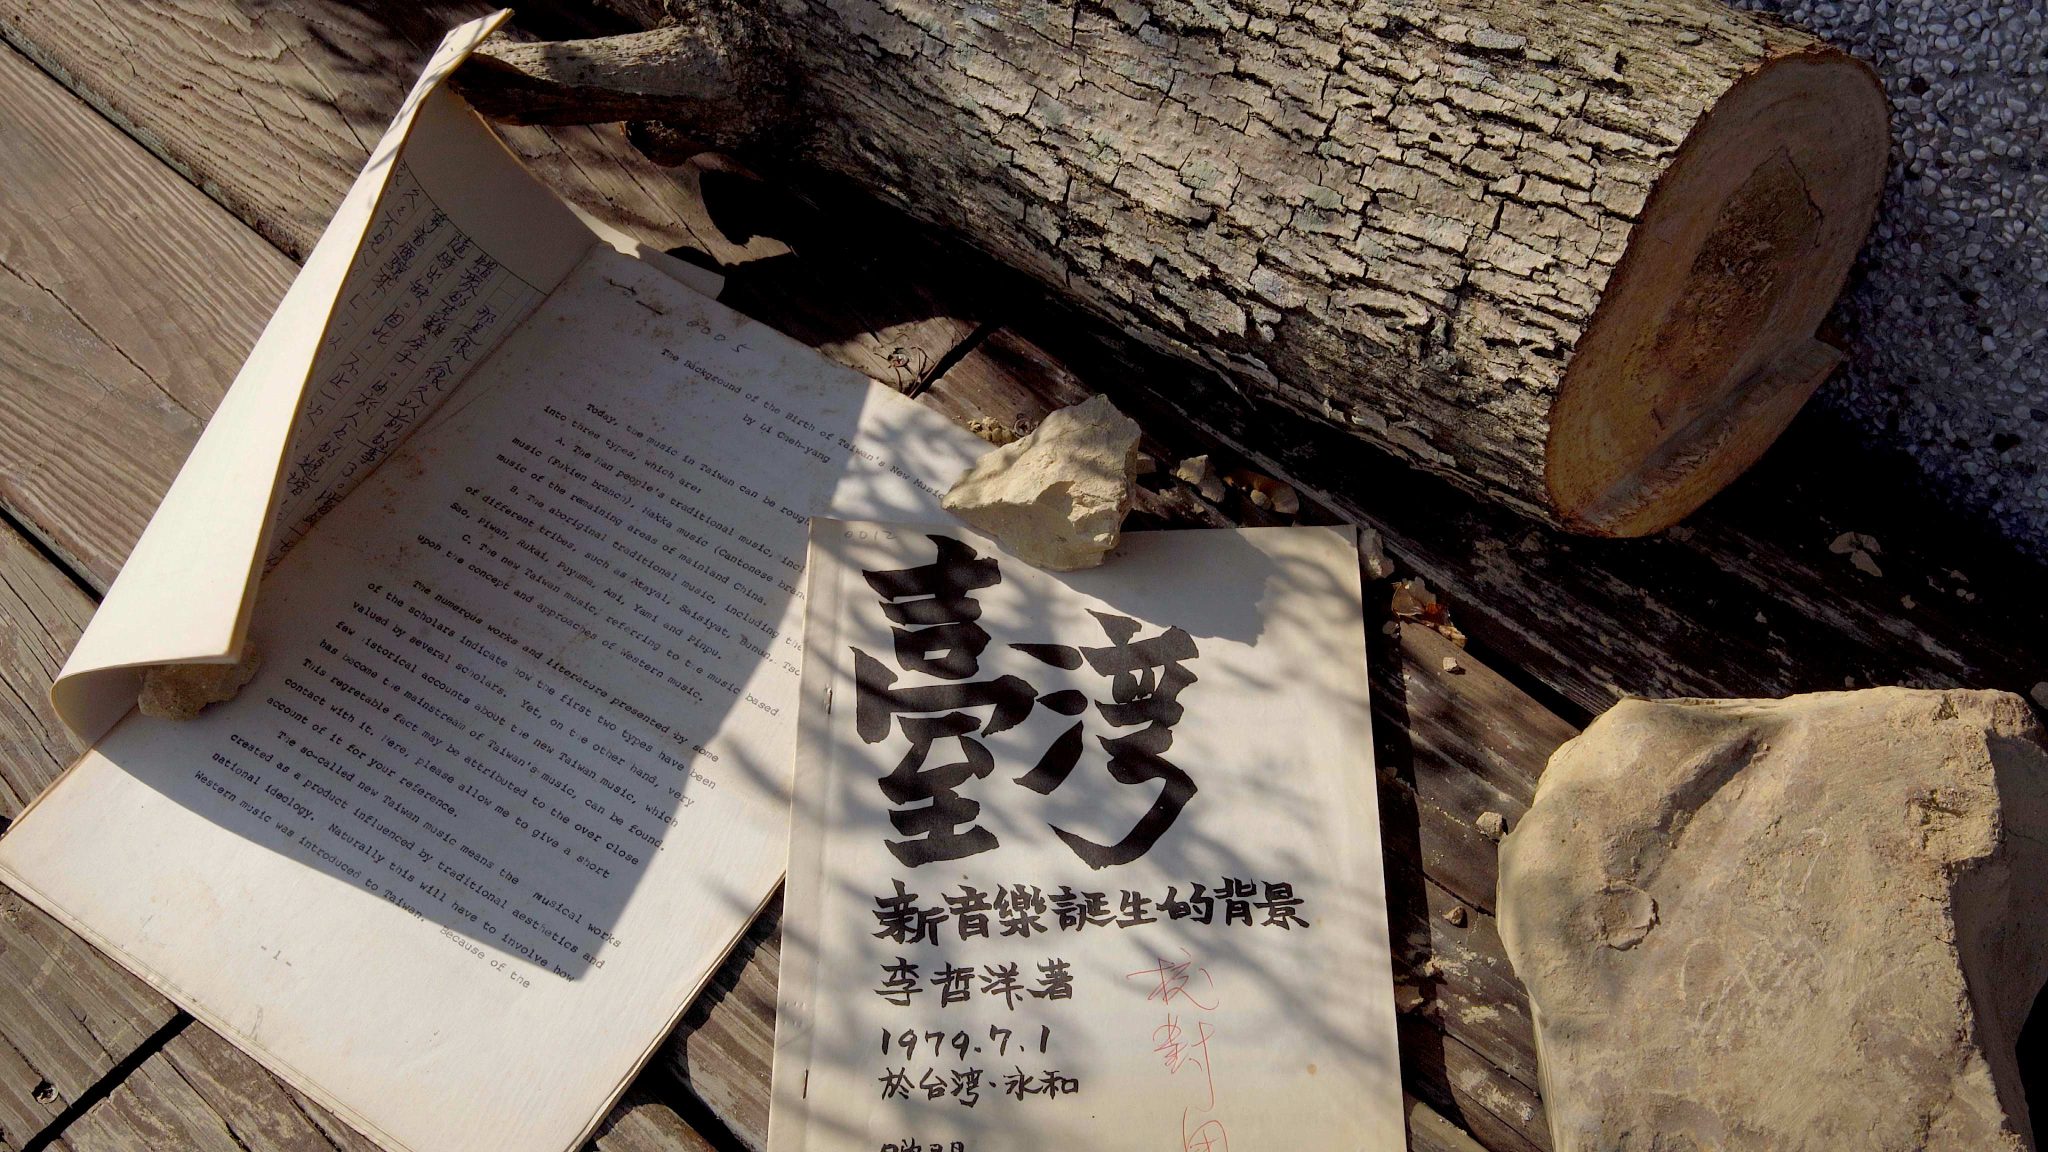 0005
The Background of the Birth of Taiwan's New Music
by Li Cheh-yang
Today, the music in Taiwan can be
into three types, which are:
A. The Han people's traditional music,
music (Fukien branch), Hakka music (Cantonese
music of the remaining areas of mainland China.
B. The aboriginal traditional music, including the
of different tribes, such as Atayal, Saisiyat, Bunun,
Sao, Piwan, Rukai, Puyuma, Ami, Yami and Pinpu.
C. The new Taiwan music, referring to the music based
upon the concept and approaches of Western music.
The numerous works and literature presented by some
of the scholars indicate how the first two types have been
valued by several scholars. Yet, on the other hand, very
few historical accounts about the new Taiwan music, which
has become the mainstream of Taiwan's music, can be found.
This regretable fact may be attributed to the over close
contact with it. Here, please allow me to give a short
account of it for your reference.
The so-called new Taiwan music means the musical works
created as a product influenced by traditional aesthetics and
national ideology. Naturally this will have to involve how
Western music was introduced to Taiwan. Because of the
- 1 -
0012
臺灣
新音樂誕生的背景
李哲洋著
1979.7.1
於台湾·永和
校對用